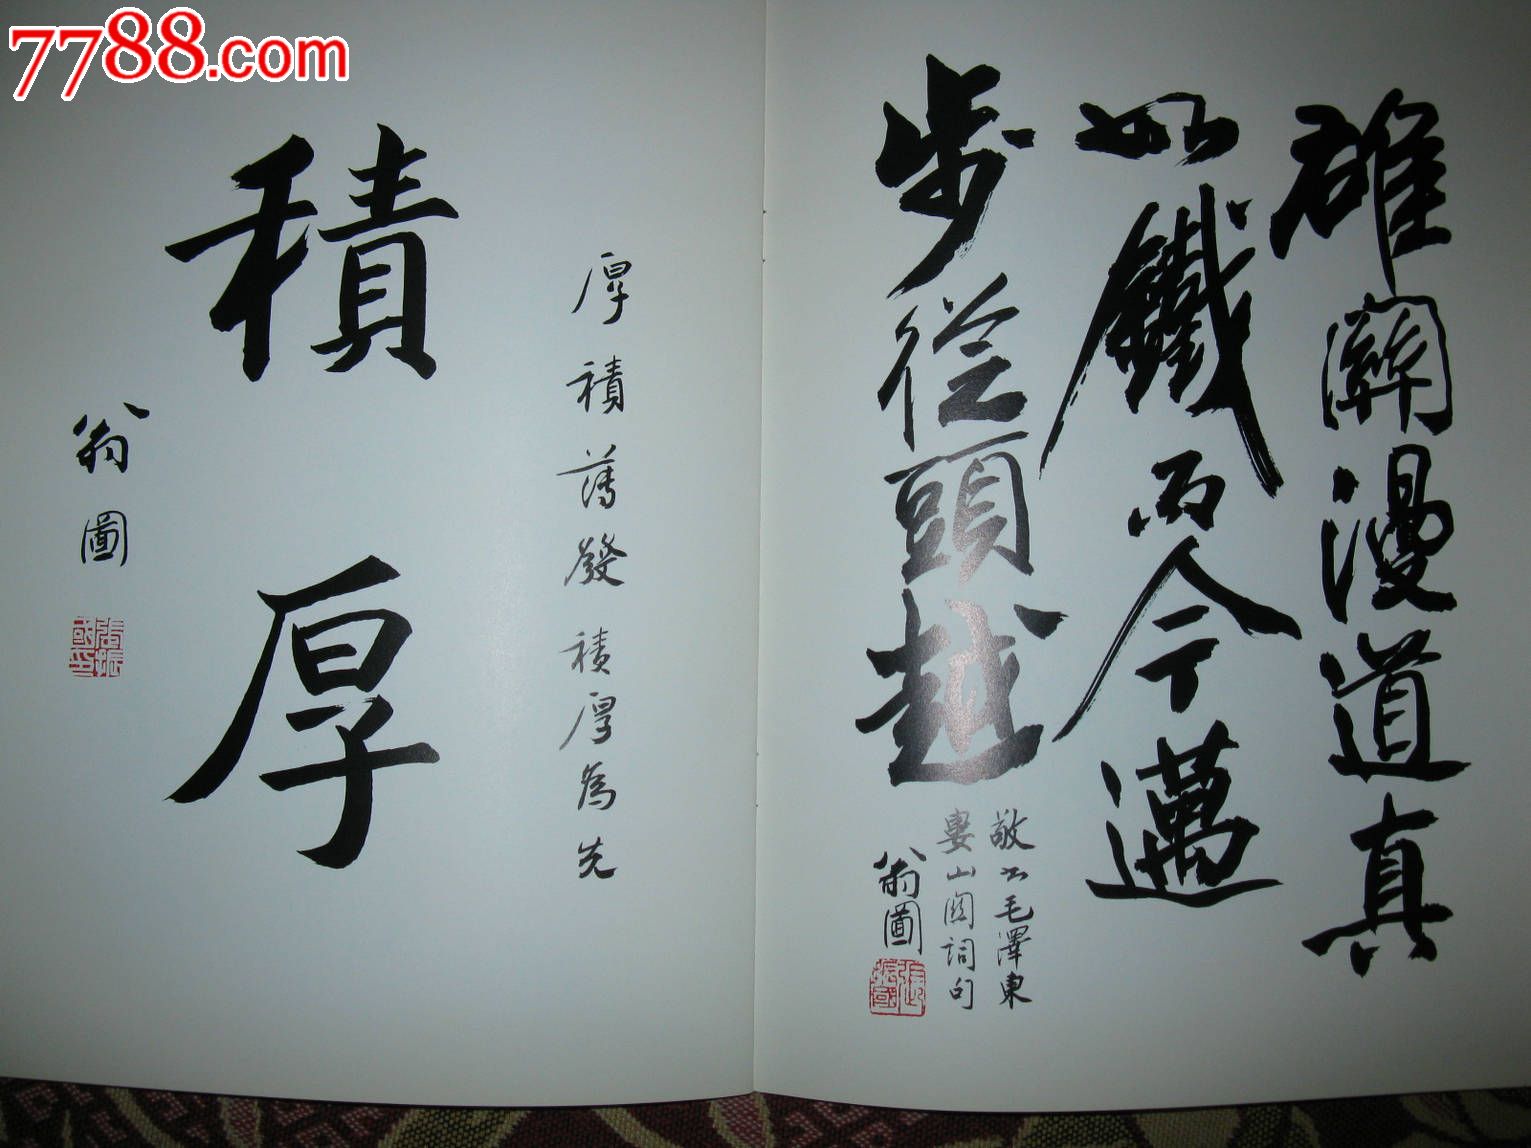 7788.com
雄關漫道真
如鐵而今邁
步從頭越
敬书毛澤東
婁山関詞句
翁圖
張振國
厚積薄發積厚為先
積厚
翁圖
張振國印